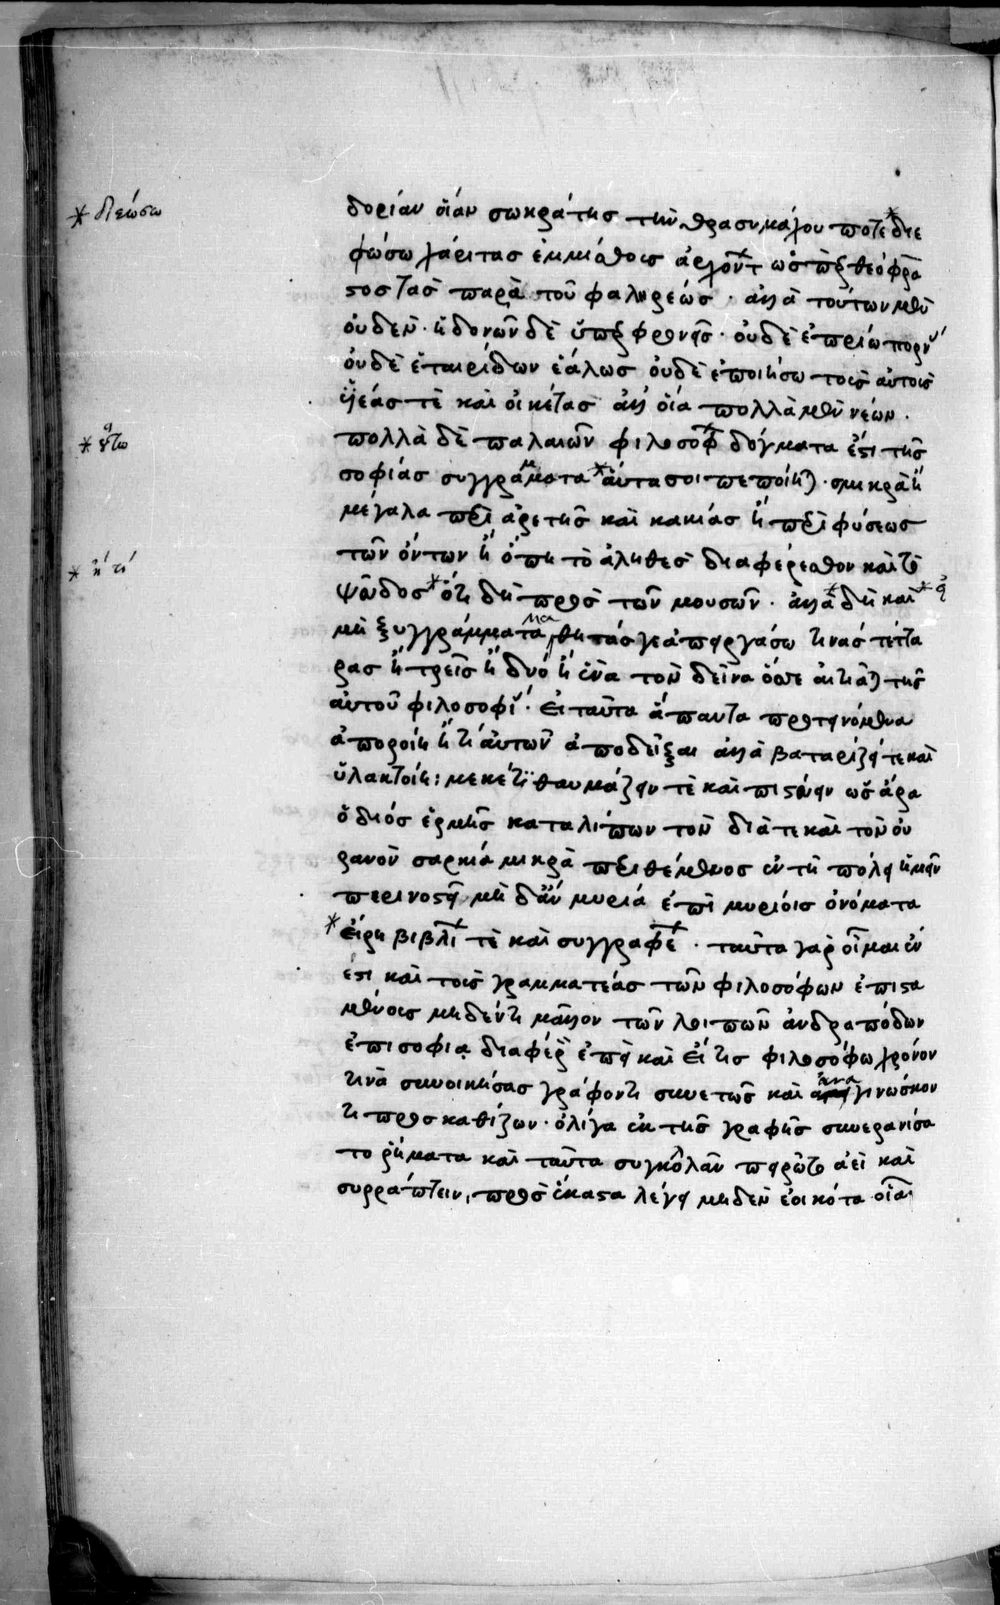 * διεώσω
δορίαν οἵαν σωκράτης τὴν θρασυμάχου ποτὲ * διε
φώσω χάριτας ἐμμίσθοις ἄρχοντ ὡς πρ θεόφρα
στος τὰς παρὰ τοῦ φαληρέως · ἀλλὰ τούτων μὲν
οὐδὲν · ἡδονῶν δὲ ὑπερφρονεῖς · οὐδὲ ἐπρίω πορν
οὐδὲ ἑταιρίδων ἑάλως οὐδὲ ἐποιήσω τοῖς αὐτοῖς
υἱέας τὲ καὶ οἰκέτας ἀλλ οἷα πολλὰ μὲν νέων ·
* ᾕτω
πολλὰ δὲ παλαιῶν φιλοσοφ δόγματα ἐπὶ τῆς
σοφίας συγγράμματα * αὐτὰ σοι πεποίηται · σμικρὰ ἢ
μεγάλα περὶ ἀρετῆς καὶ κακίας ἢ περὶ φύσεως
* ἢ τί
τῶν ὄντων ἢ ὅπη τὸ ἀληθὲς διαφέρεσθον καὶ τὸ
ψεῦδος * ὅτι δὴ πρὸς τῶν μουσῶν · ἀλλὰ * δὴ καὶ *
μὴ ξυγγράμματα μαθητάς γε ἀπειργάσω τινάς τέττα
ρας ἢ τρεῖς ἢ δυό ἢ ἕνα τὸν δεῖνα ὅστε αἰτιᾶται τῆς
αὐτοῦ φιλοσοφί · εἰ ταῦτα ἅπαντα προτεινόμενα
ἀποροίη ἤ τι αὐτῶν ἀποδεῖξαι ἀλλὰ βαταρίζει τε καὶ
ὑλακτοίη : μὲκέτι θαυμάζειν τὲ καὶ πιστεύειν ὡς ἄρα
ὁ διός ἑρμῆς καταλιπων τὸν δία τε καὶ τὸν οὐ
ρανὸν σαρκία μικρὰ περιθέμενος ἐν τῇ πόλει ἡμῖν
περινοστεῖ μὴ δἂν μυρία ἐπὶ μυρίοις ὀνόματα
* εἴρη βιβλί τὲ καὶ συγγραφέ · ταῦτα γὰρ οἶμαι ἐν
ἔστι καὶ τοῖς γραμματέας τῶν φιλοσόφων ἐπιστα
μένοις μηδέν τι μᾶλλον τῶν λοιπῶν ἀνδραπόδων
ἐπὶ σοφία διαφέρ ἐπεὶ καὶ εἴ τις φιλοσόφω χρόνον
τινὰ συνοικήσας γράφοντι συνετῶς καὶ ἀναγινώσκον
τι προσκαθίζων · ὀλίγα ἐκ τῆς γραφῆς συνερανίσα
το ῥήματα καὶ ταῦτα συγκολλᾶν πειρῷτο ἀεὶ καὶ
συρράπτειν, πρὸς ἕκαστα λέγει μηδὲν ἐοικότα οἷα